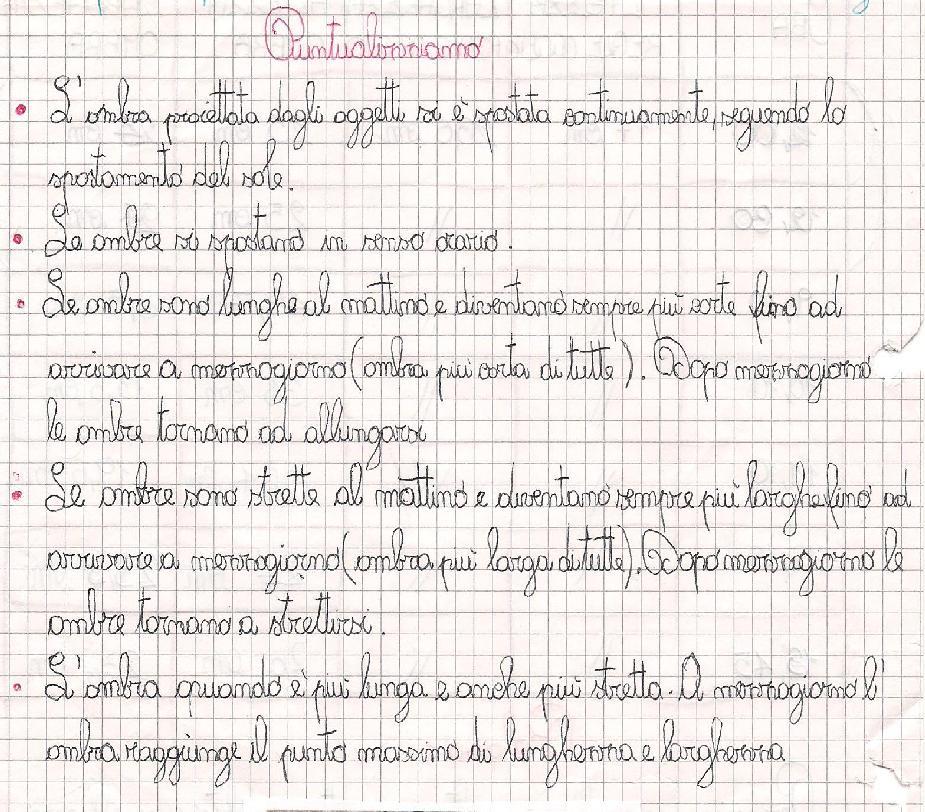 Puntualizziamo
• L'ombra proiettata dagli oggetti si è spostata continuamente, seguendo lo
spostamento del sole.
• Le ombre si spostano in senso orario.
• Le ombre sono lunghe al mattino e diventano sempre più corte fino ad
arrivare a mezzogiorno (ombra più corta di tutte). Dopo mezzogiorno
le ombre tornano ad allungarsi
• Le ombre sono strette al mattino e diventano sempre più larghe fino ad
arrivare a mezzogiorno (ombra più larga di tutte). Dopo mezzogiorno le
ombre tornano a strettirsi.
• L'ombra quando è più lunga e anche più stretta. A mezzogiorno l'
ombra raggiunge il punto massimo di lunghezza e larghezza